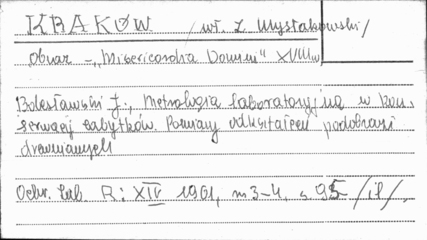 KRAKÓW /wł. Z. Mysłakowski/
Obraz - "Misericordia Domini" XVIII w
Bolesławski J., Metrologia laboratoryjna w kon
serwacji zabytków. Pomiary odkształceń podobrazi
drewnianych
Ochr. Zab. R: XIV 1961, nr 3-4, s 95 /il/,